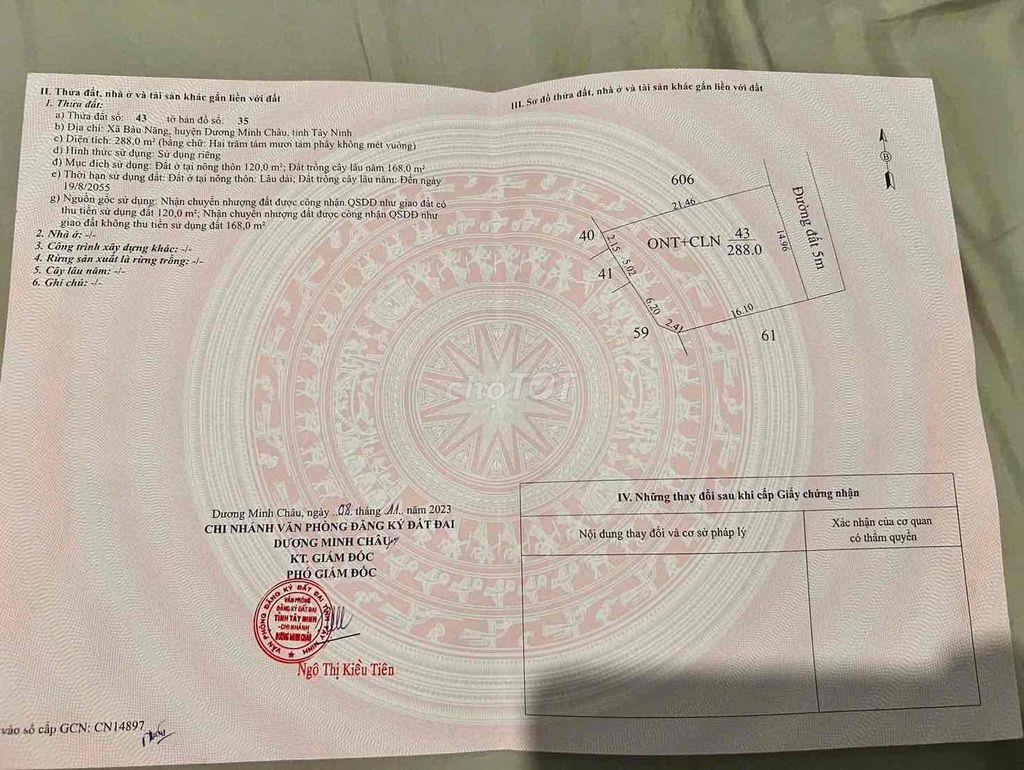 II. Thửa đất, nhà ở và tài sản khác gắn liền với đất
1. Thửa đất:
a) Thửa đất số: 43 tờ bản đồ số: 35
b) Địa chỉ: Xã Bàu Năng, huyện Dương Minh Châu, tỉnh Tây Ninh
c) Diện tích: 288,0 m² (bằng chữ: Hai trăm tám mươi tám phẩy không mét vuông)
d) Hình thức sử dụng: Sử dụng riêng
đ) Mục đích sử dụng: Đất ở tại nông thôn 120,0 m²; Đất trồng cây lâu năm 168,0 m²
e) Thời hạn sử dụng đất: Đất ở tại nông thôn: Lâu dài; Đất trồng cây lâu năm: Đến ngày
19/8/2055
g) Nguồn gốc sử dụng: Nhận chuyển nhượng đất được công nhận QSDĐ như giao đất có
thu tiền sử dụng đất 120,0 m²; Nhận chuyển nhượng đất được công nhận QSDĐ như
giao đất không thu tiền sử dụng đất 168,0 m²
2. Nhà ở: -/-
3. Công trình xây dựng khác: -/-
4. Rừng sản xuất là rừng trồng: -/-
5. Cây lâu năm: -/-
6. Ghi chú: -/-
III. Sơ đồ thửa đất, nhà ở và tài sản khác gắn liền với đất
B
606
21.46
40
2.15
ONT+CLN 43
288.0
14.96
Đường đất 5m
41
5.02
6.20
2.41
16.10
59
61
choTỐT
Dương Minh Châu, ngày 08 tháng 11 năm 2023
CHI NHÁNH VĂN PHÒNG ĐĂNG KÝ ĐẤT ĐAI
DƯƠNG MINH CHÂU
KT. GIÁM ĐỐC
PHÓ GIÁM ĐỐC
VĂN PHÒNG ĐĂNG KÝ ĐẤT ĐAI TỈNH TÂY NINH
VĂN PHÒNG
ĐĂNG KÝ ĐẤT ĐAI
TỈNH TÂY NINH
-CHI NHÁNH
DƯƠNG MINH CHÂU
Ngô Thị Kiều Tiên
IV. Những thay đổi sau khi cấp Giấy chứng nhận
Nội dung thay đổi và cơ sở pháp lý
Xác nhận của cơ quan
có thẩm quyền
vào sổ cấp GCN: CN14897